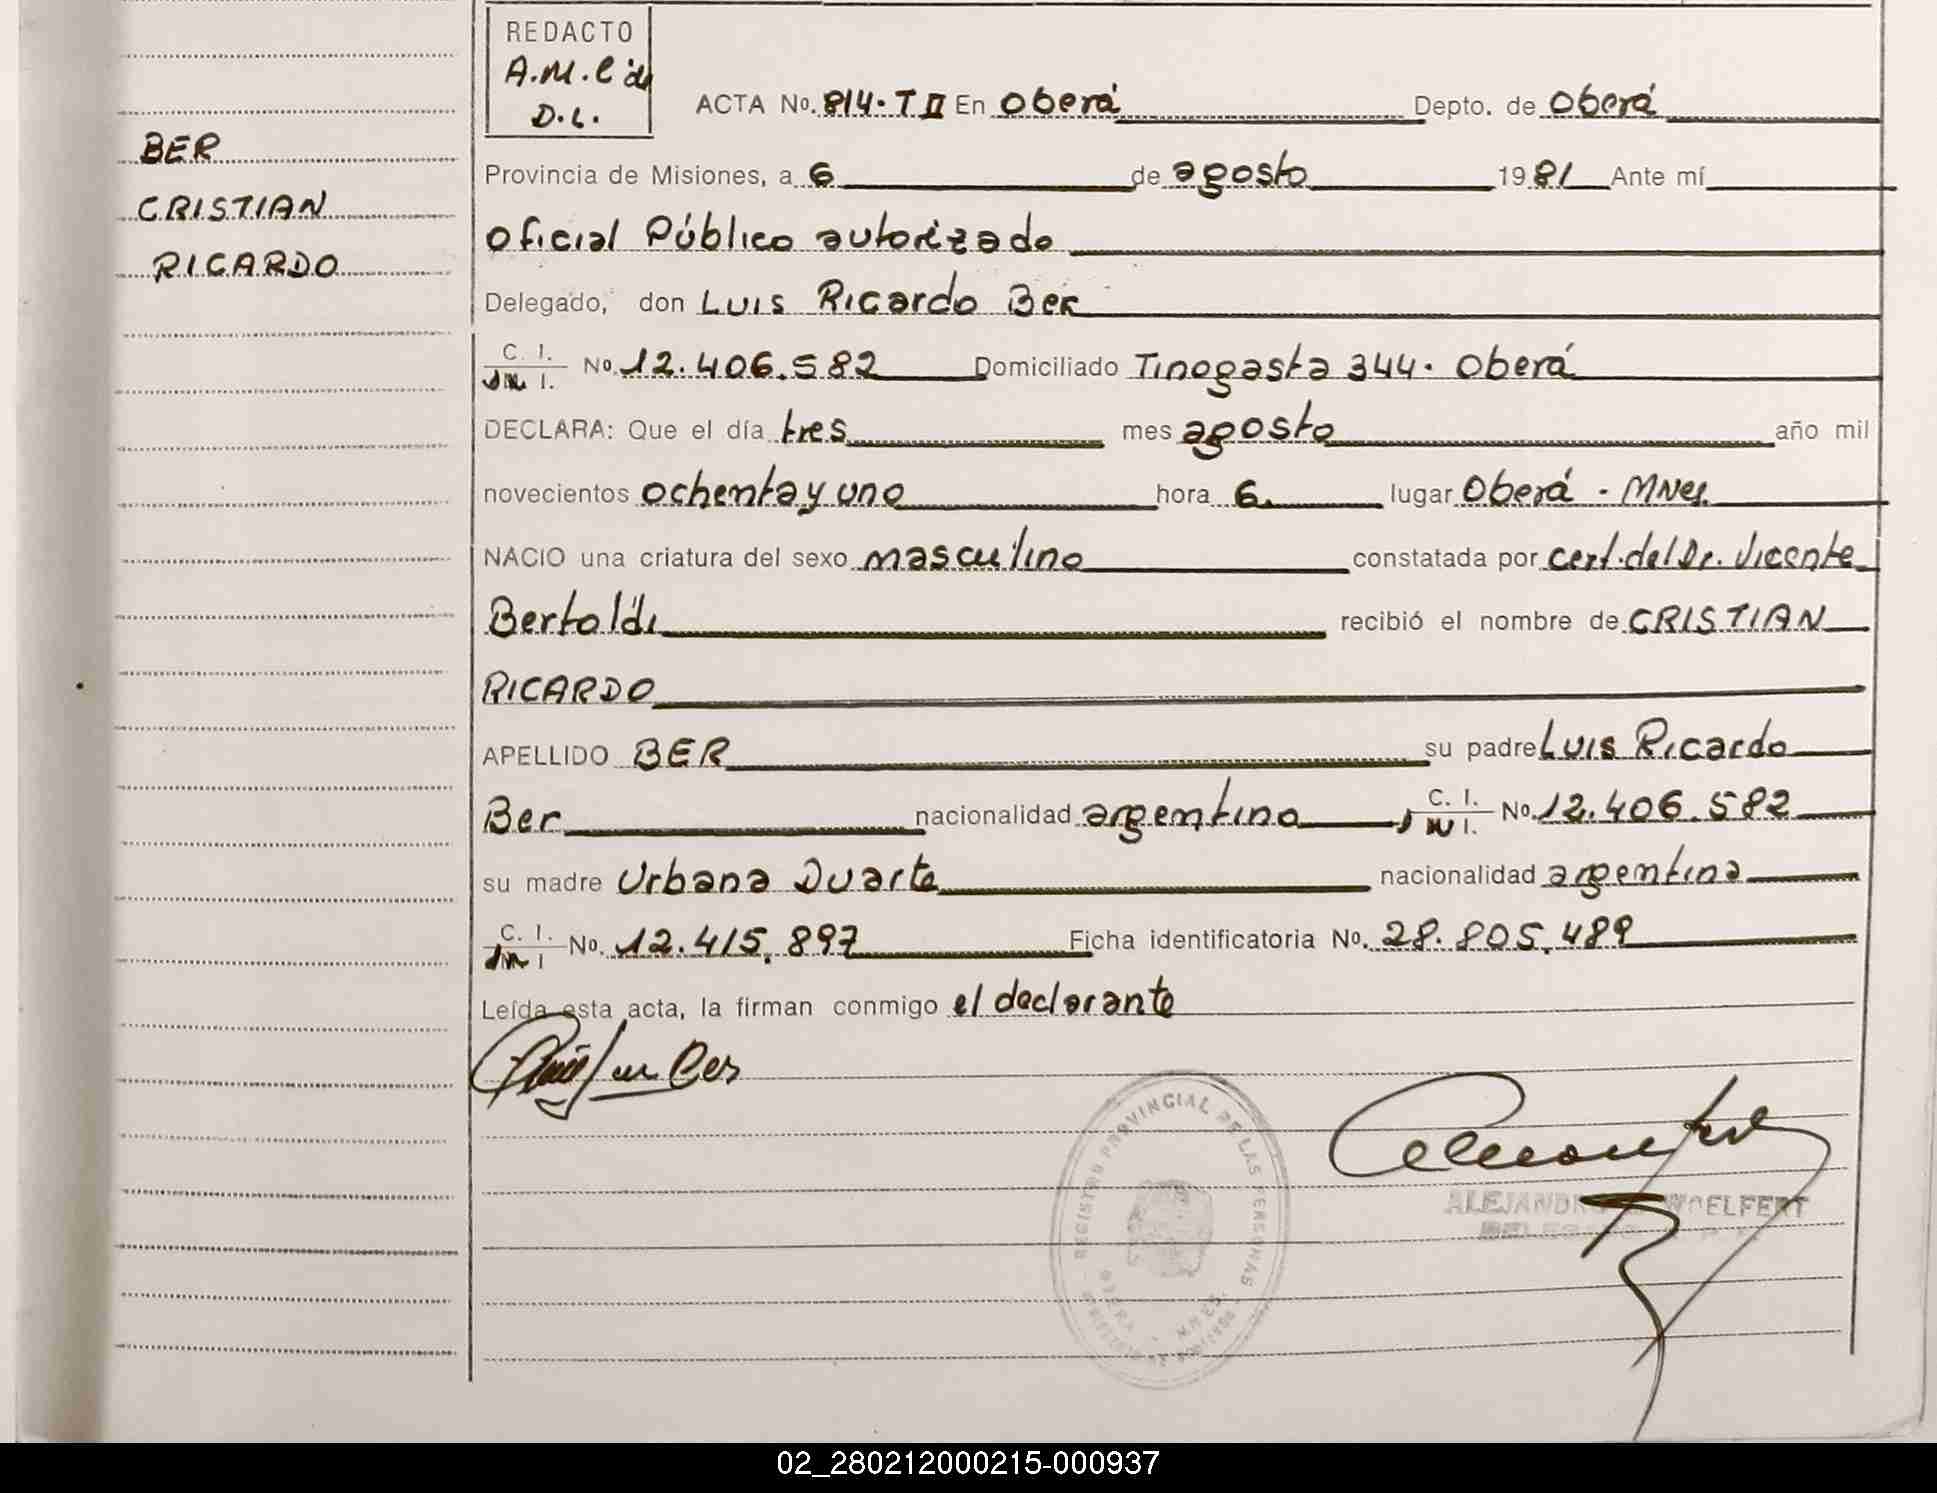 REDACTO
A.M.C de
D.L.
ACTA No. 814. T II En Oberá Depto. de Oberá
BER
CRISTIAN
RICARDO
Provincia de Misiones, a 6 de agosto 1981 Ante mí
Oficial Público autorizado
Delegado, don Luis Ricardo Ber
C. I. / M I. No. 12.406.582 Domiciliado Tinogasta 344. Oberá
DECLARA: Que el día tres mes agosto año mil
novecientos ochenta y uno hora 6. lugar Oberá - Mnes.
NACIO una criatura del sexo masculino constatada por cert. del Dr. Vicente
Bertoldi recibió el nombre de CRISTIAN
RICARDO
APELLIDO BER su padre Luis Ricardo
Ber nacionalidad argentino C. I. / M I. No. 12.406.582
su madre Urbana Duarte nacionalidad argentina
C. I. / M I No. 12.415.897 Ficha identificatoria No. 28.805.489
Leída esta acta, la firman conmigo el declarante
REGISTRO PROVINCIAL DE LAS PERSONAS
OBERA MNES.
ALEJANDRO WOELFERT
02_280212000215-000937